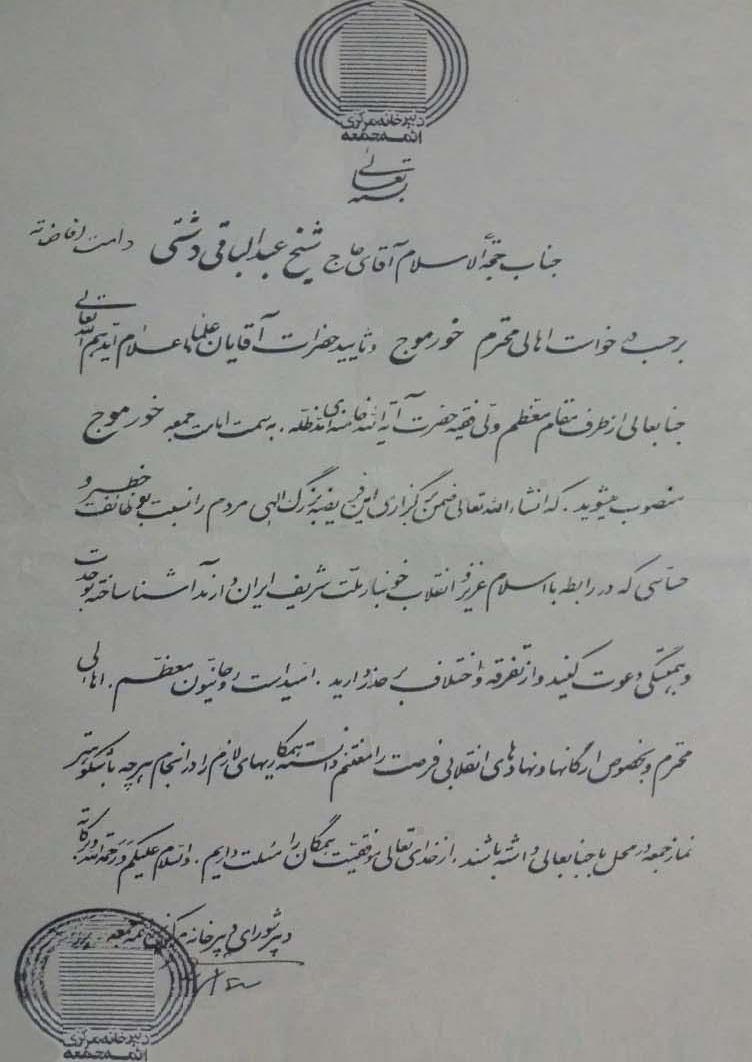 دبیرخانه مرکزی
ائمه جمعه
بسمه تعالی
جناب حجة الاسلام آقای حاج شیخ عبدالباقی دشتی دامت افاضاته
برحسب درخواست اهالی محترم خورموج و تایید حضرات آقایان علماء اعلام ایدهم الله تعالی
جنابعالی از طرف مقام معظم ولی فقیه حضرت آیة الله خامنه‌ای مدظله، به سمت امامت جمعه خورموج
منصوب میشوید. که انشاءالله تعالی ضمن برگزاری این فریضه بزرگ الهی مردم را نسبت بوظائف خطیر و
حساسی که در رابطه با اسلام عزیز و انقلاب خونبار ملت شریف ایران دارند آشنا ساخته بوحدت
و همبستگی دعوت کنید و از تفرقه و اختلاف بر حذر دارید. امید است روحانیون معظم، اهالی
محترم و بخصوص ارگانها و نهادهای انقلابی فرصت را مغتنم دانسته همکاریهای لازم را در انجام هرچه باشکوهتر
نماز جمعه در محل با جنابعالی داشته باشند. از خدای تعالی موفقیت همگان را مسئلت داریم. والسلام علیکم و رحمة الله و برکاته
دبیر شورای دبیرخانه مرکزی ائمه جمعه
دبیرخانه مرکزی
ائمه جمعه